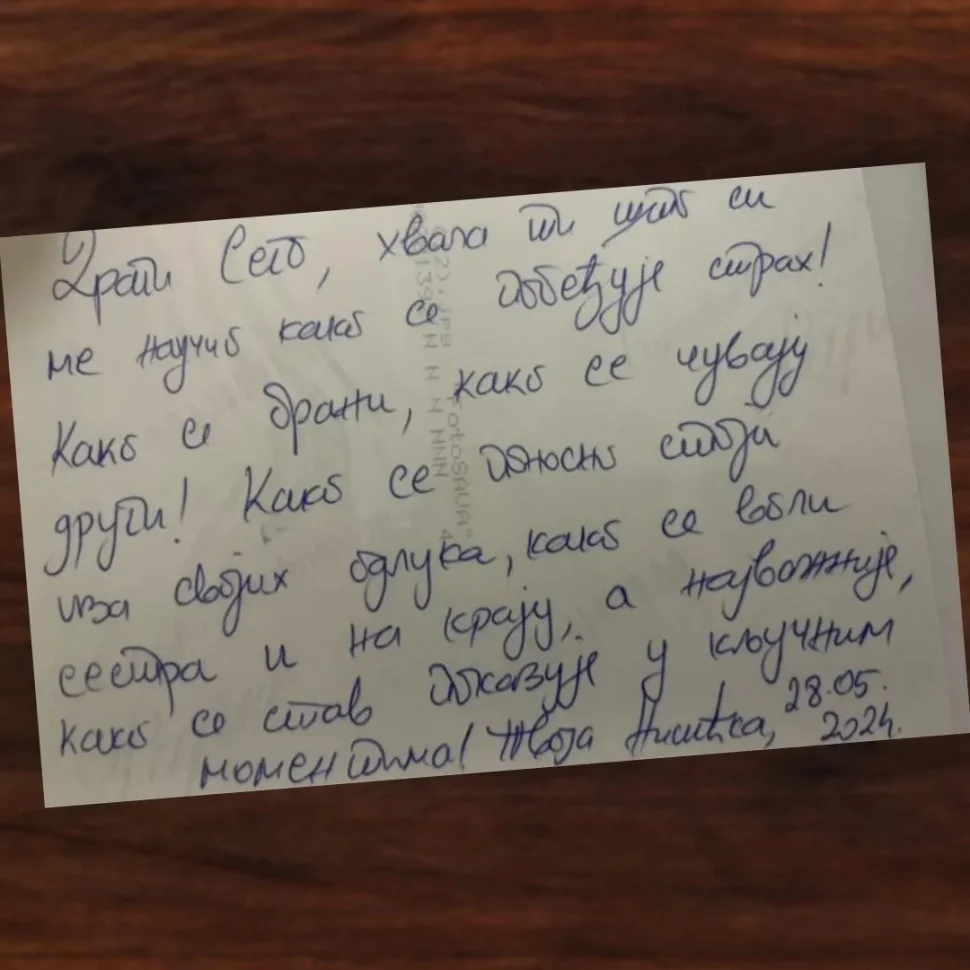 Драги Сето, хвала ти што си
ме научио како се побеђује страх!
Како се брани, како се чувају
други! Како се поносно стоји
иза својих одлука, како се воли
сестра и на крају, а најважније,
како се став показује у кључним
моментима! Твоја 28.05.
2024.
"FotoGAUA"
N N N NNN